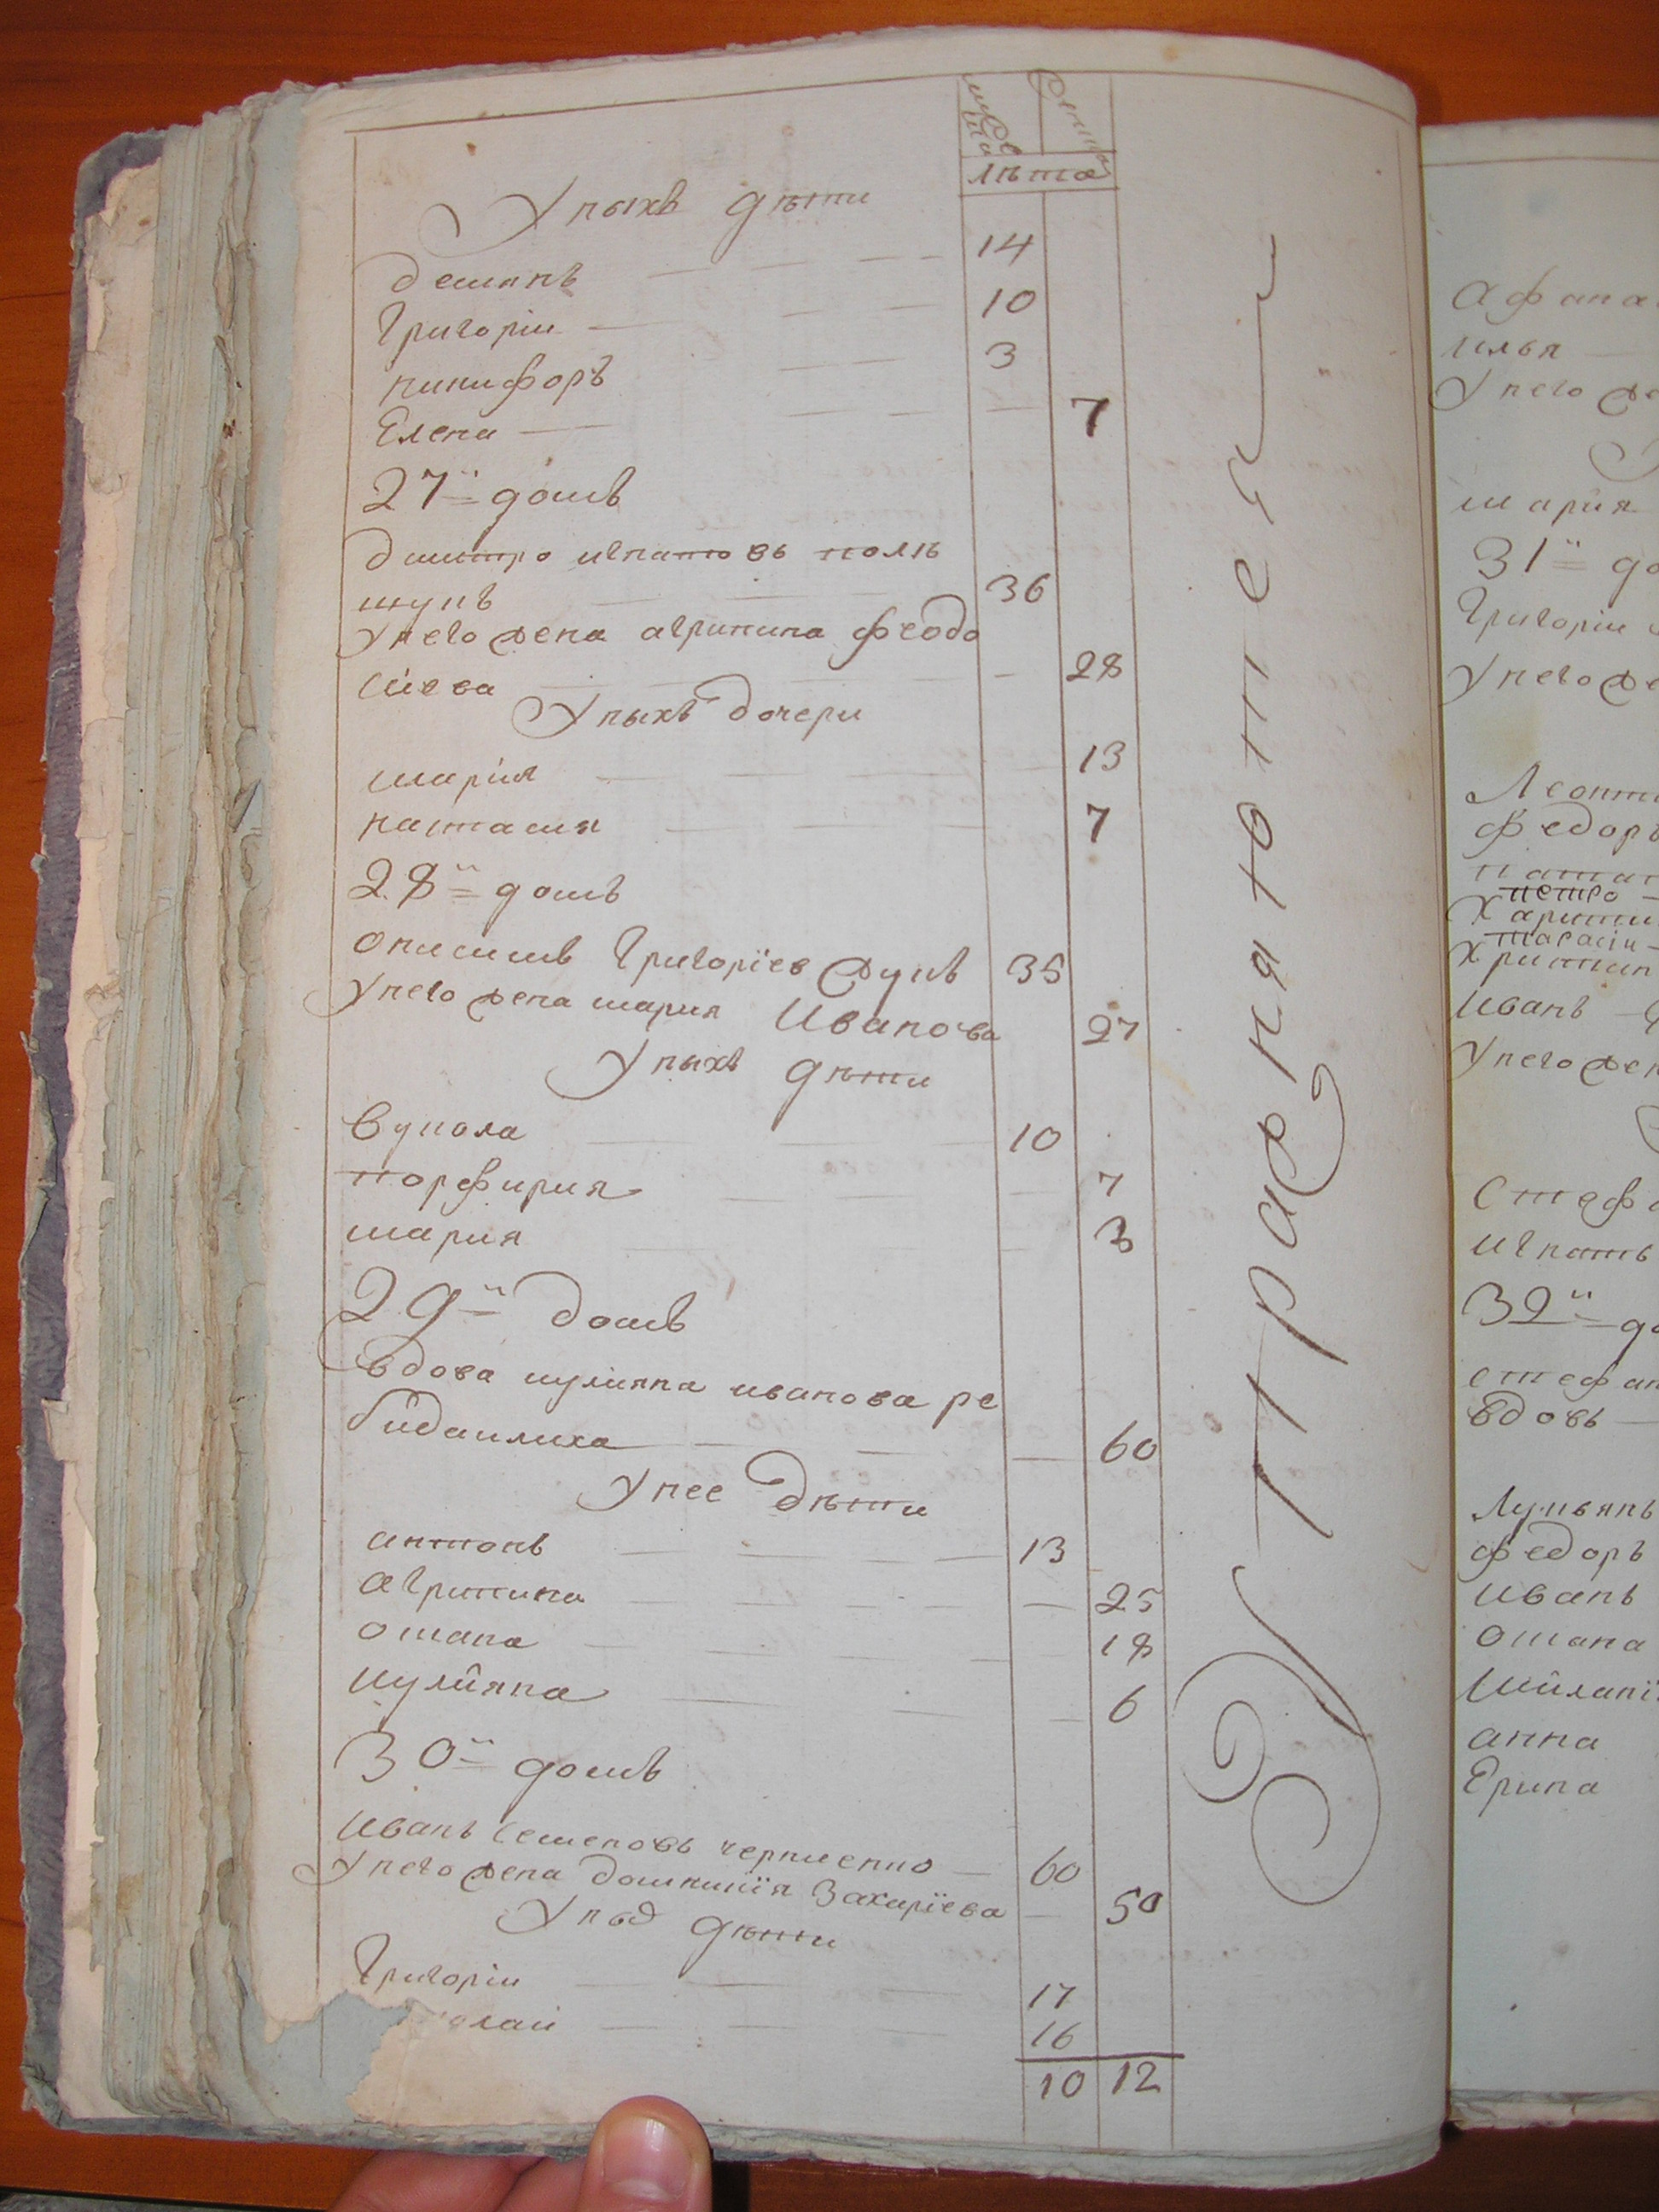 мужеска
женска
лѣта
У ныхъ дѣти
демянъ 14
Григоріи 10
никифоръ 3
Елена 7
27й домъ
дмитро игнатовъ колѣ
36
У него жена агрипина феодо
сиева 28
У ныхъ дочери
мария 13
настасия 7
28й домъ
онисимъ Григорїев жукъ 35
У него жена мария Иванова 27
У ныхъ дѣти
вукола 10
порфирия 7
мария 3
29й домъ
вдова иулияна иванова ре
бидаилиха 60
У нее дѣти
антонъ 13
агрипина 25
18
иулияна 6
30й домъ
Иванъ Семеновъ черниенко 60
У него жена домникия Захарїева 50
У ных дѣти
Григоріи 17
олаи 16
10 12
Упражняются
Афана
илья
У него же
мария
31й до
Григоріи
У него же
Леонти
федоръ
петро
Харити
тарасіи
Християн
Иванъ
У него жен
Стефа
игнатъ
32й до
стефан
вдовъ
Лукьянъ
федоръ
иванъ
анна
Ерина